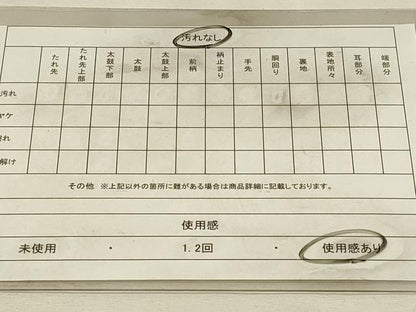 汚れなし
たれ先 たれ先上部 太鼓下部 太鼓 太鼓上部 前柄 柄止まり 手先 胴回り 裏地 表地所々 耳部分 端部分
汚れ
ヤケ
れ
解け
その他 ※上記以外の箇所に難がある場合は商品詳細に記載しております。
使用感
未使用 ・ 1.2回 ・ 使用感あり